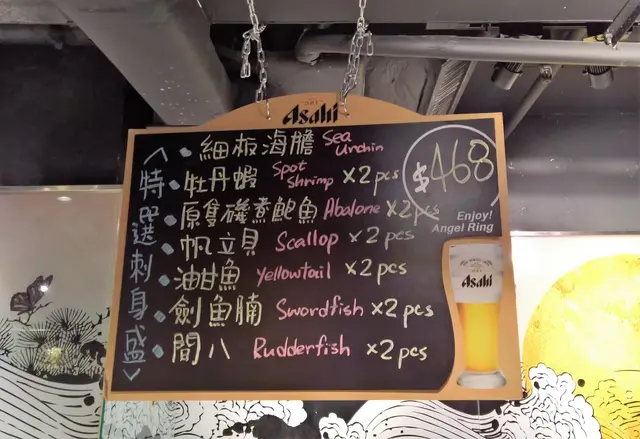 Asahi
<特選刺身盛>
細板海膽 Sea Urchin
牡丹蝦 Spot Shrimp x2pcs
原隻磯煮鮑魚 Abalone x2pcs
帆立貝 Scallop x2pcs
油甘魚 Yellowtail x2pcs
劍魚腩 Swordfish x2pcs
間八 Rudderfish x2pcs
$468
Enjoy!
Angel Ring
Asahi